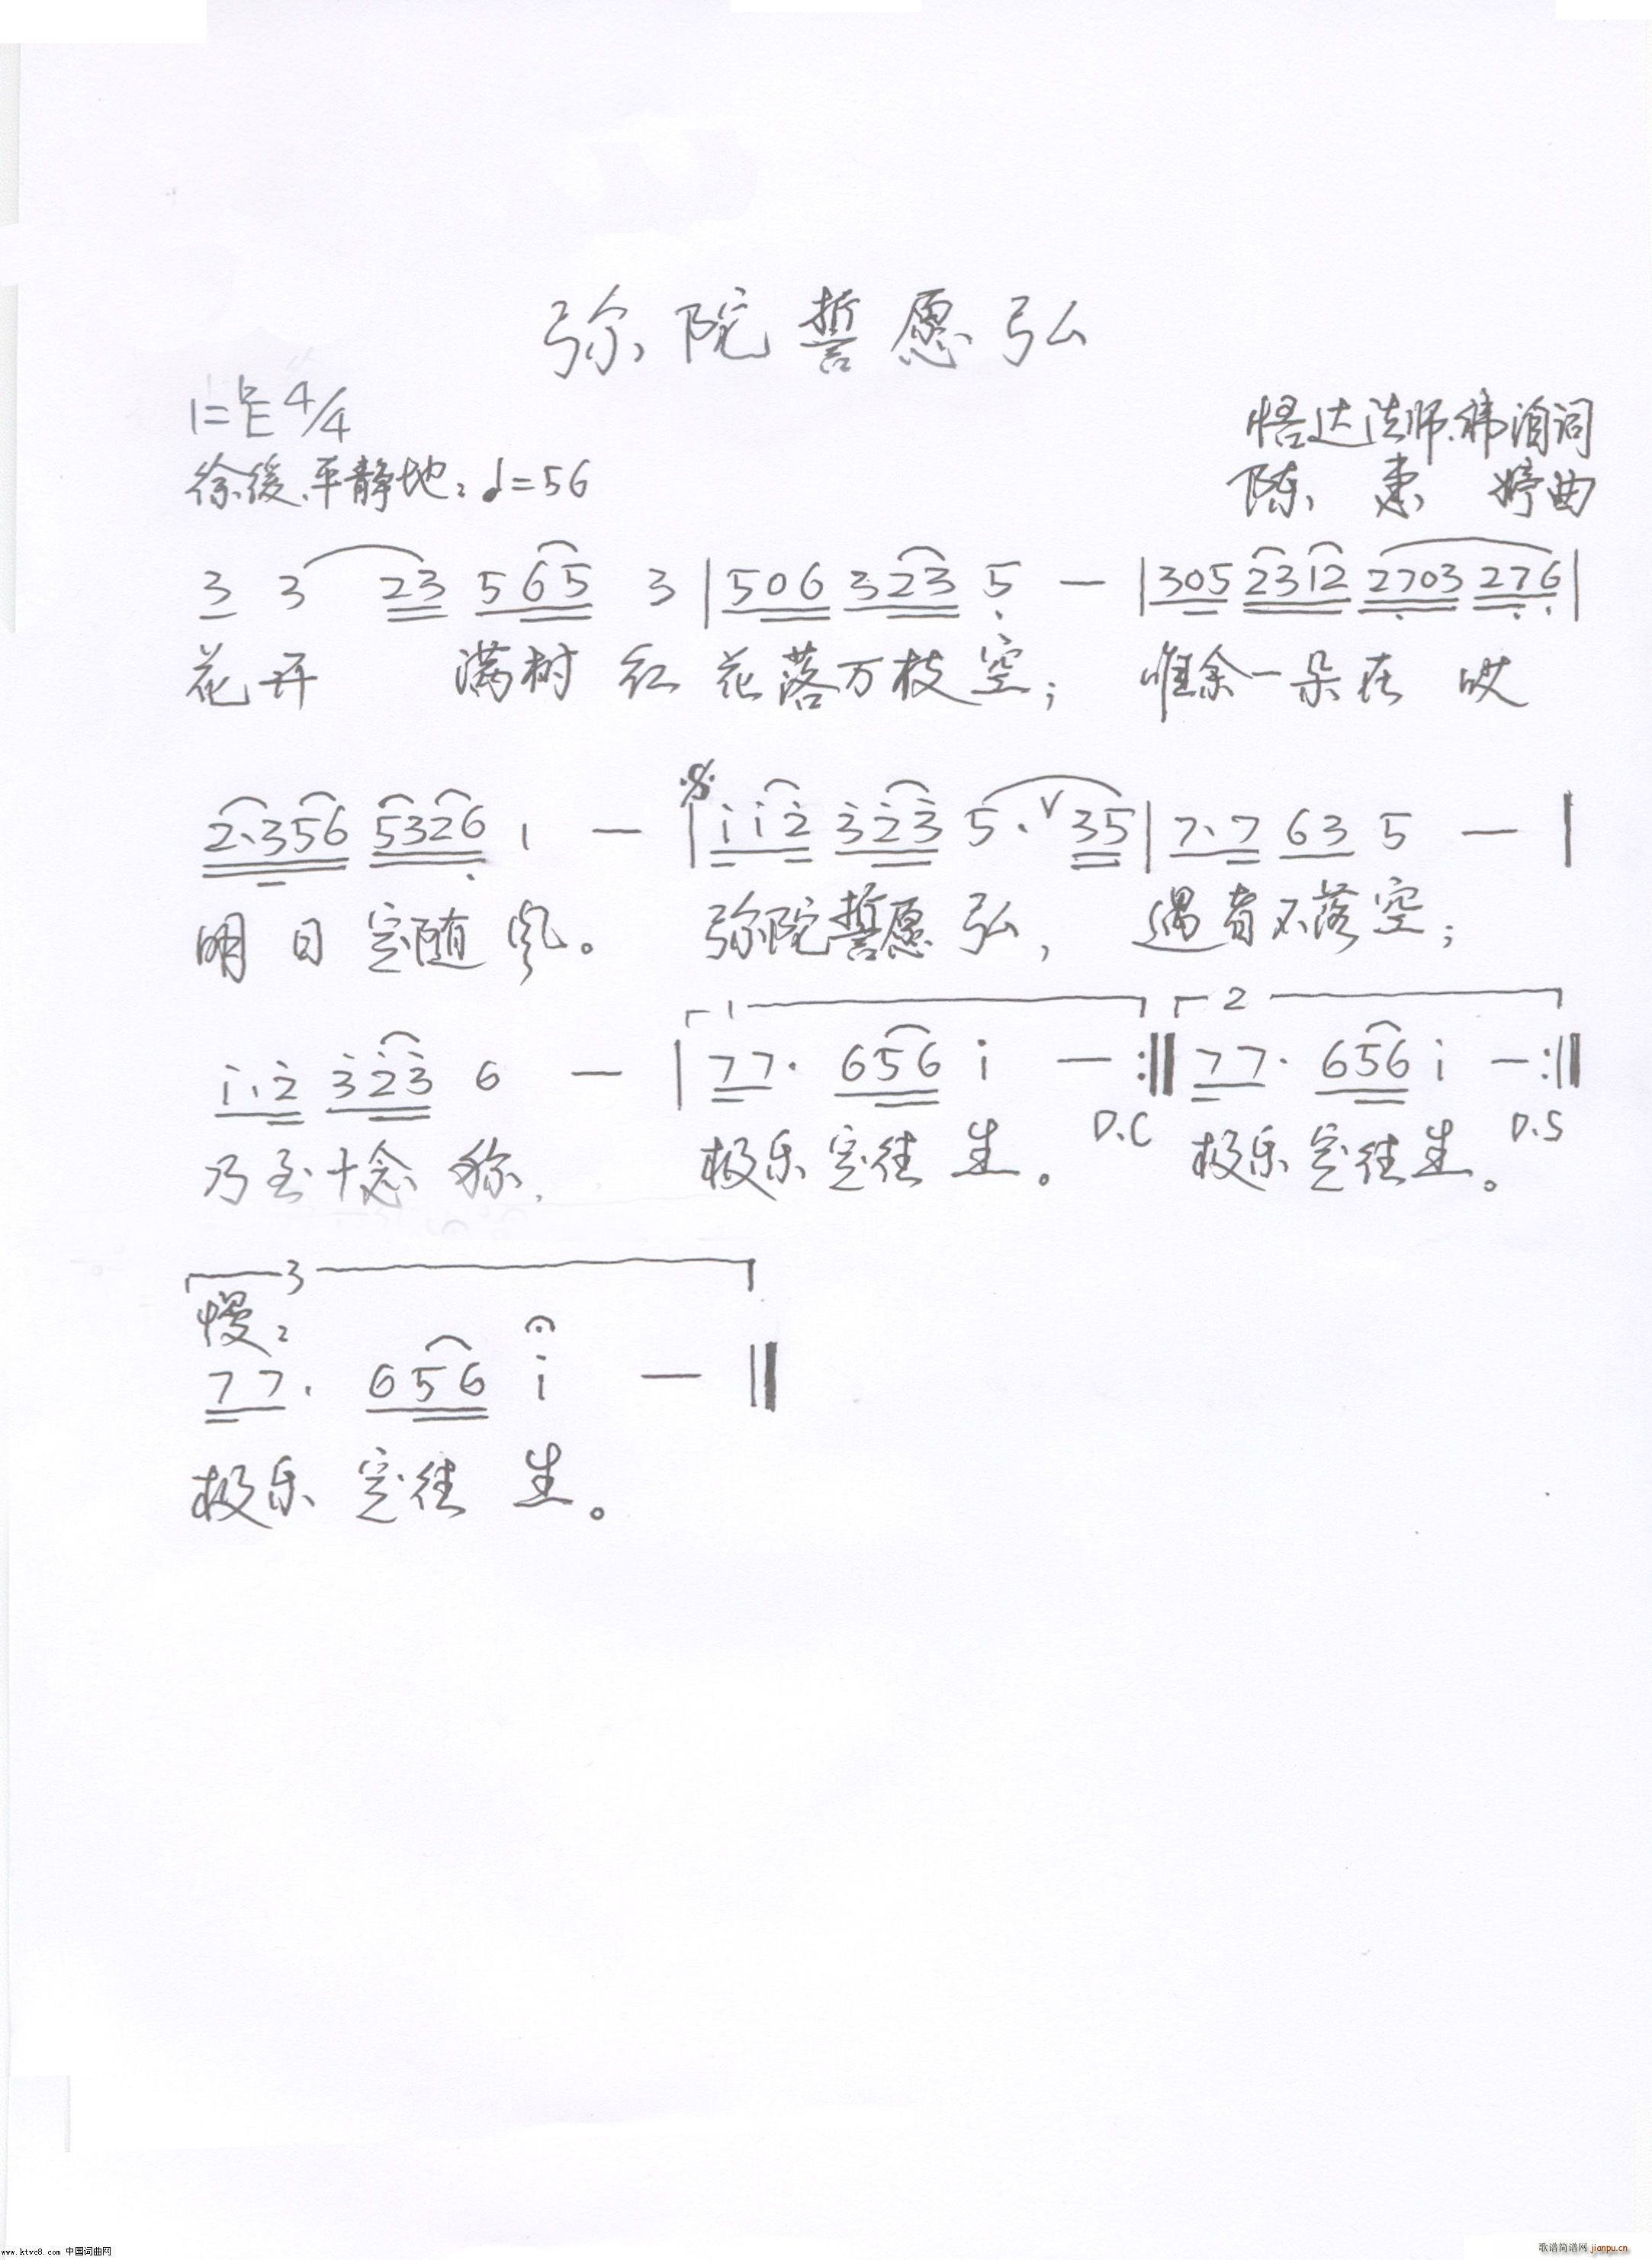 弥陀誓愿弘
1=♭E 4/4
悟达法师、祎洎词
徐缓、平静地：♩=56
陈 婷曲
3 3 23 565 3 | 506 323 5 — | 305 2312 2703 276 |
花开 满树 红 花落万枝空； 唯余一朵在 哎
2·356 5326 1 — | i i2 323 5· V 35 | 7·7 63 5 — |
明日定随风。 弥陀誓愿弘， 遇者不落空；
1 2
i·2 323 6 — | 77· 656 i — :‖ 77· 656 i — :‖
D.C D.S
乃至十念称， 极乐定往生。 极乐定往生。
3
慢：
77· 656 i — ‖
极乐定往生。
www.ktvc8.com 中国词曲网
歌谱简谱网 jianpu.cn